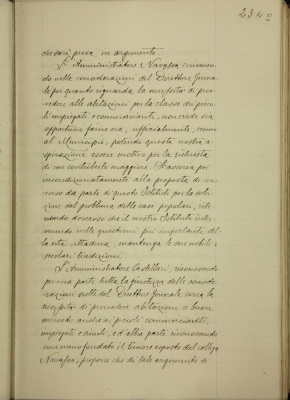 234
che sarà presa in argomento.
L'Amministratore Navassa convenendo
nelle considerazioni del Direttore Genera-
le per quanto riguarda la necessità di prov-
vedere alle abitazioni per la classe dei picco-
li impiegati e commercianti, non crede ora
opportuno farne ora, ufficialmente, cenno
al Municipio, potendo questa nostra a-
zione essere motivo per la richiesta
di un contributo maggiore. Si associa poi
incondizionatamente alla proposta di
da parte di questo Istituto per la solu-
zione del problema delle case popolari, rite-
nendo doveroso che il nostro Istituto inter-
venendo nelle questioni più importanti del-
la vita cittadina, mantenga le sue nobili e
secolari tradizioni.
L'Amministratore Castellari, riconoscendo
per una parte tutta la giustezza delle conside-
razioni svolte dal Direttore Generale circa la
necessità di provvedere abitazioni a buon
mercato anche ai piccoli commercianti,
impiegati e simili, e d'altra parte riconoscendo
non meno fondato il timore esposto dal collega
Navassa, propone che di tale argomento si